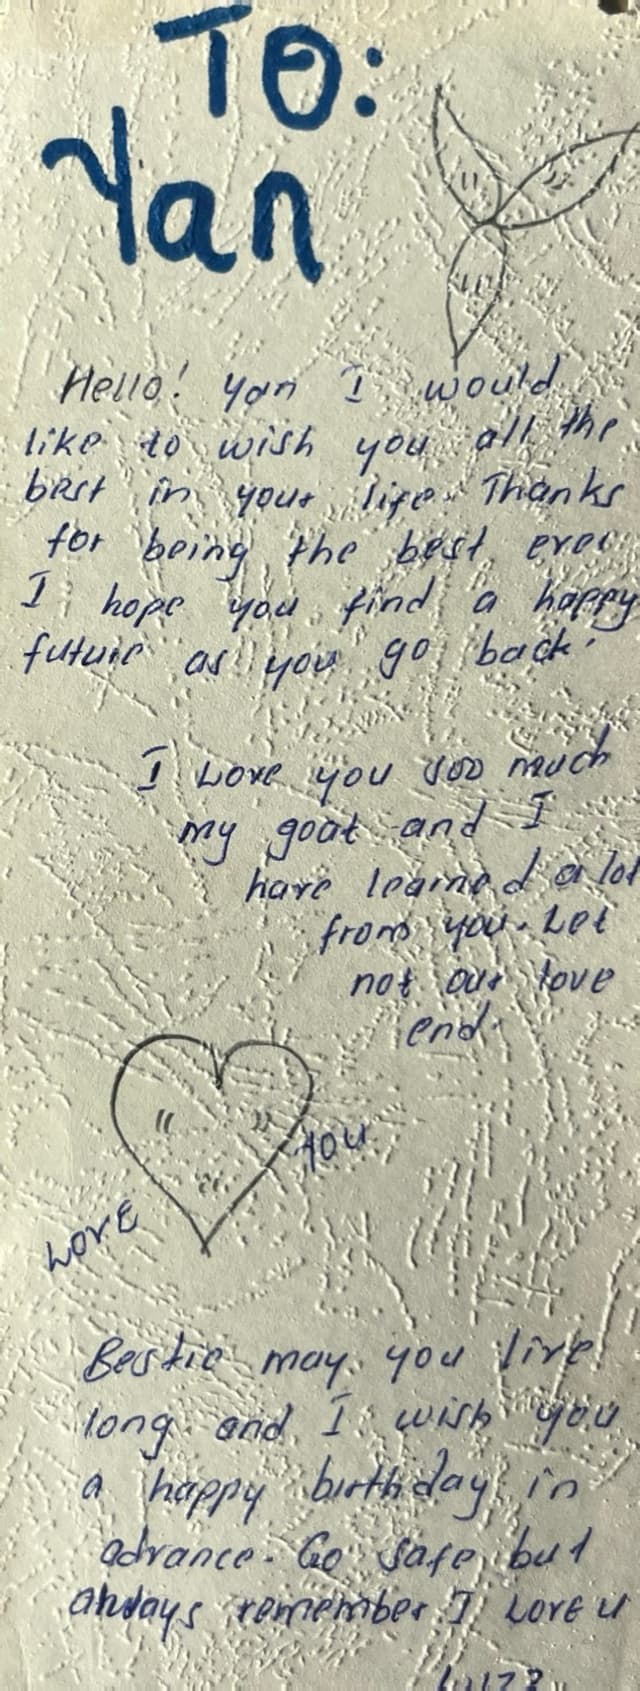 TO:
Yan
Hello! Yan I would
like to wish you all the
best in your life. Thanks
for being the best ever
I hope you find a happy
future as you go back.
I Love you soo much
my goat and I
have learned a lot
from you. Let
not our love
end.
YOU
LOVE
Bestie may you live
long and I wish you
a happy birthday in
advance. Go safe but
always remember I LOVE U